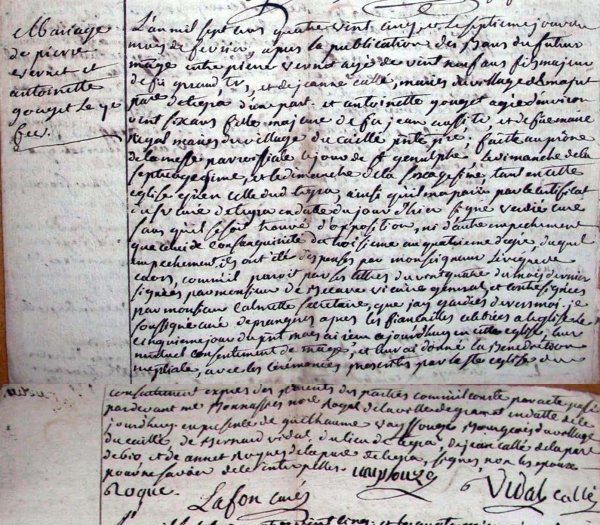 Mariage
de pierre
vernet et
antoinette
gouzet le 7e
fev.
L'an mil sept cens quatre vint cinq, et le septieme jour du
mois de fevrier, apres la publication des bans du futur
mariage entre pierre vernet agé de vint neuf ans fils majeur
de feu geraud, et de jeanne calle, mariés du village de majut
pare de tegra d'une part. et antoinette gouzet agée d'environ
vint six ans fille majeure de feu jean aussi, et de feue marie
Royal mariés du village du caillé pnte psse, faite au prone
de la messe parroissiale le jour de st genulphe, le dimanche de la
septuagesime, et le dimanche de la sexagesime, tant en cette
eglise qu'en celle dud tegra, ainsi qu'il m'a paru par le certificat
du sr curé de tegra en datte du jour d'hier signé verdie curé
sans qu'il se soit trouvé d'opposition, ni d'autre empechement
que celui de consanguinité du troisieme au quatrieme degre, duquel
empechement ils ont été dispenses par monseigneur l'eveque de
caors, comm'il paroit par ses lettres du vint quatre du mois dernier
signées par monsieur de Becave vicaire general, et contresignées
par monsieur calmette secretaire, que j'ay gardées devers moi. je
soussigné curé de prangeres apres les fiancailles celebrées a l'eglise le
cinquieme jour du pnt mois ai reçu ce jourdhuy en cette eglise, leur
mutuel consentement de mariage, et leur ai donné la Benediction
nuptiale, avec les ceremonies prescrites par la ste eglise de
consentement expres des parents des parties comm'il conste par acte passé
pardevant me Monnasses nore Royal de la ville de gramat en datte de ce
jourdhuy en presence de guilhaume vayssouze Bourgeois du village
du caillé, de Bernard vidal du lieu de tegra, de jean callé de la pare
de bio, et de annet Roques de la pare de tegra, signés, non les epoux
pour ne savoir de ce interpellés. vayssouze
Roque. Lafon curé Vidal callé